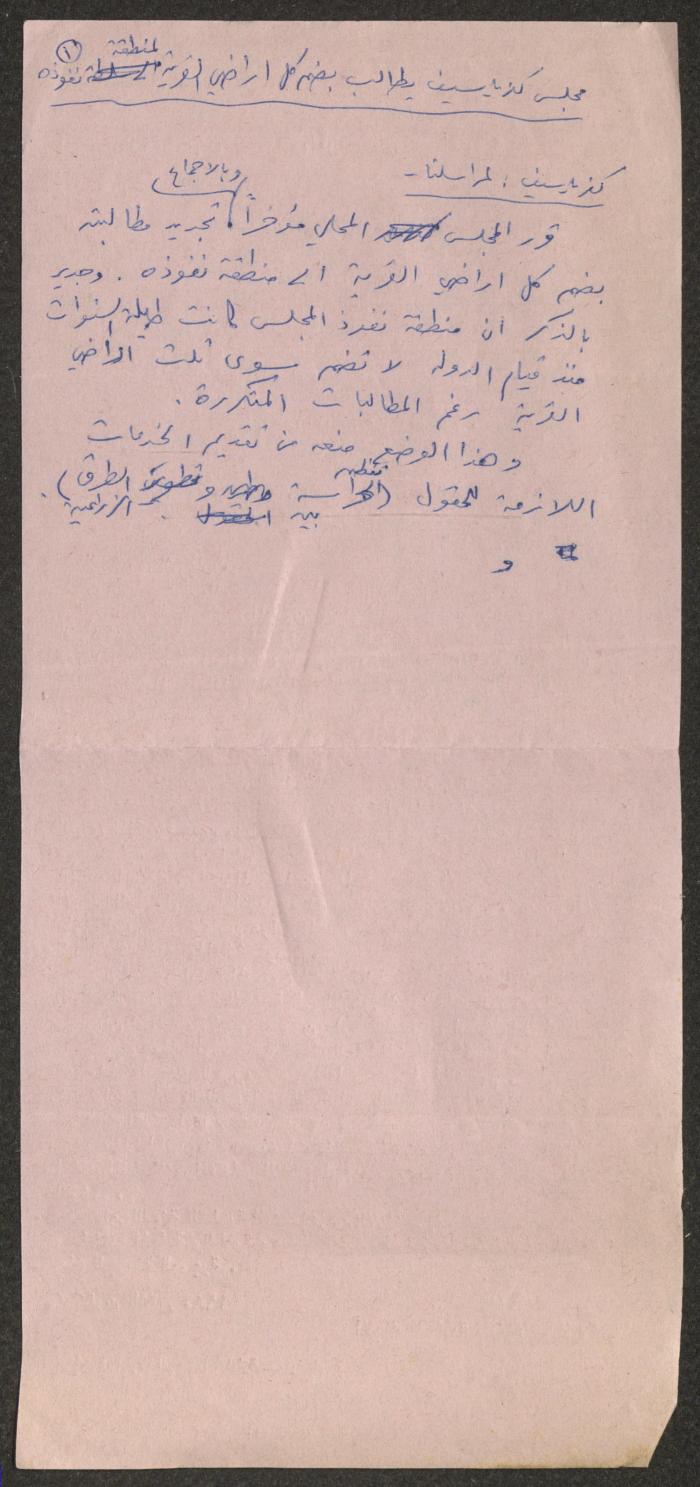 ١
مجلس كفر ياسيف يطالب بضم كل اراضي القرية لمنطقة نفوذه
كفر ياسيف : لمراسلنا -
قرر المجلس المحلي مؤخراً وبالاجماع تجديد مطالبته
بضم كل اراضي القرية الى منطقة نفوذه . وجدير
بالذكر ان منطقة نفوذ المجلس كانت طيلة السنوات
منذ قيام الدولة لا تضم سوى ثلث اراضي
القرية رغم المطالبات المتكررة .
وهذا الوضع منعه من تقديم الخدمات
اللازمة للحقول ( تنظيم الحراسة وتطوير الطرق
الزراعية ) .
و